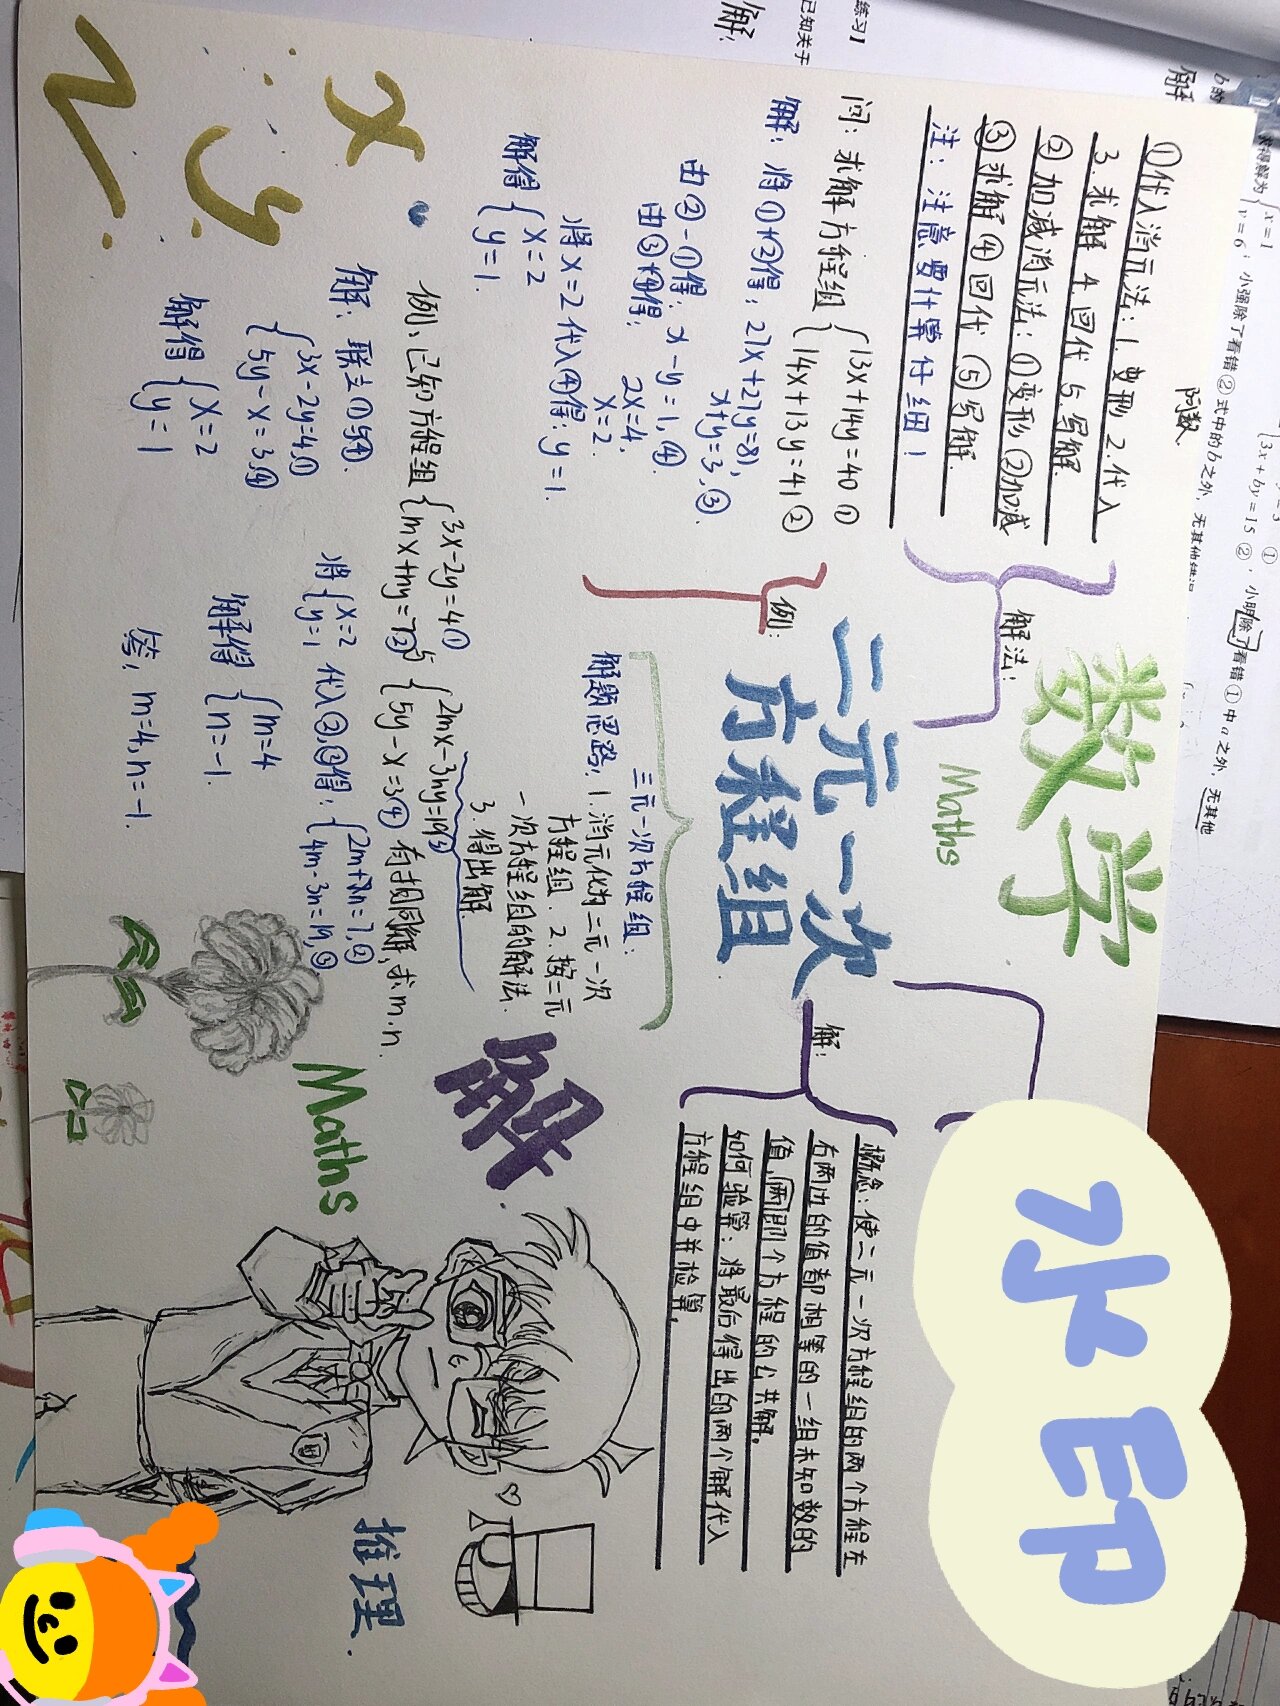 数学
Maths
二元一次
方程组
解法:
①代入消元法:1.变形 2.代入
3.求解 4.回代 5.写解
②加减消元法:①变形 ②加减
③求解 ④回代 ⑤写解
注:注意要计算仔细!
例:
问:求解方程组 {13x+14y=40 ①
14x+13y=41 ②
解:将①+②得:27x+27y=81,
x+y=3,③
由②-①得:x-y=1,④.
由③+④得:2x=4,
x=2.
将x=2代入④得:y=1.
解得{x=2
y=1.
三元一次方程组.
解题思路:1.消元化为二元一次
方程组.2.按二元
一次方程组的解法.
3.得出解.
例、已知方程组{3x-2y=4①
mx+ny=7②
与{2mx-3ny=19③
5y-x=3④
有相同解,求m.n.
解:联立①与④.
{3x-2y=4,①
5y-x=3,④
解得{x=2
y=1
将{x=2
y=1
代入②,③得:{2m+n=7,②
4m-3n=19,③
解得{m=4
n=-1.
答:m=4,n=-1.
解:
概念:使二元一次方程组的两个方程左
右两边的值都相等的一组未知数的
值,即个方程的公共解.
如何验算:将最后得出的两个解代入
方程组中并检算.
解.
Maths
推理.
x
y
z
水印
练习1
已知关于
解:
b的
解
求得解为{x=1
y=6
;小强除了看错②式中的b之外,无其他错误
阿数
3x+by=15 ②
①
,小明除了看错①中a之外,无其他